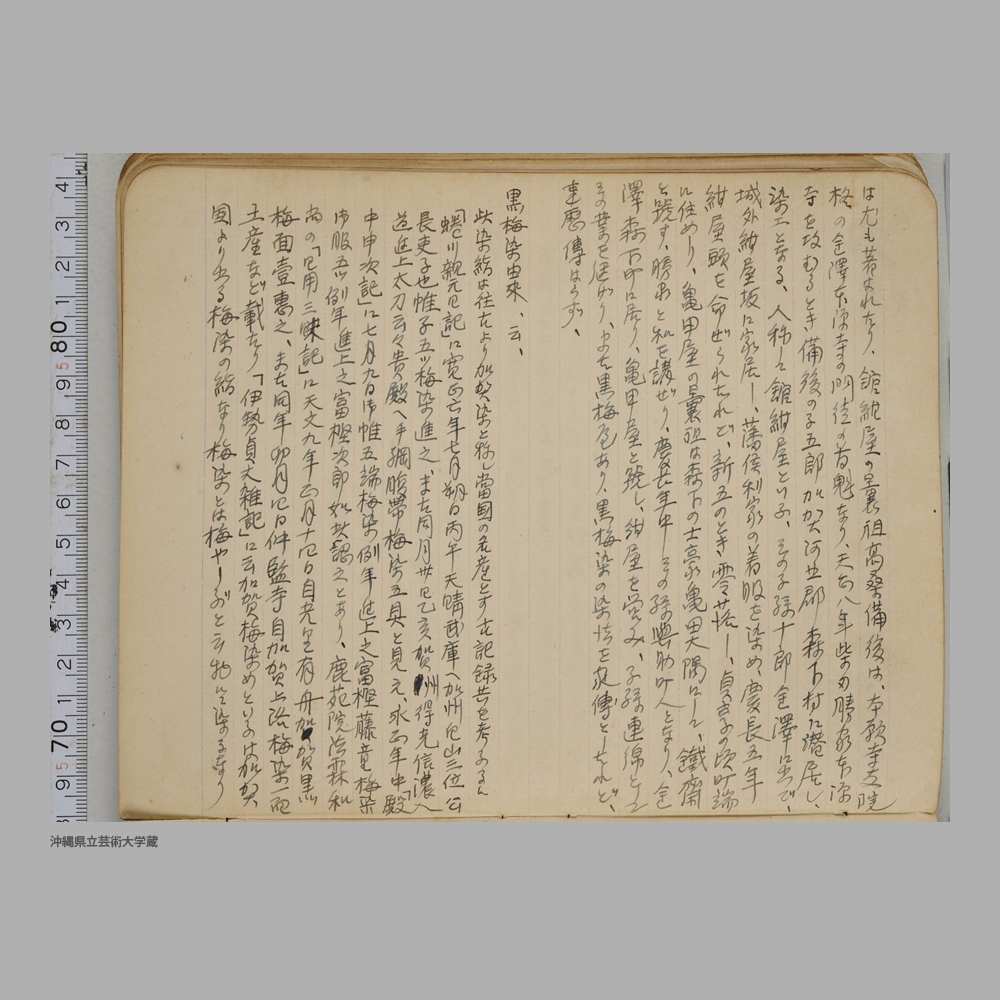 は尤も著はれたり、舘紺屋の曩祖高桑備後は、本願寺支院
格の金澤本源寺の門徒の首魁なり、天正八年柴田勝家本源
寺を攻むるとき備後の子五郎加賀河北郡森下村に潜居し、
染工となる、人称して舘紺屋といふ、その子孫十郎金澤に出で、
城外紺屋坂に家居し、藩侯利家の着服を染め、慶長五年
紺屋頭を命ぜられたれど、新五のとき零落し、貞享の頃町端
に住めり、亀甲屋の曩祖は森下の士豪亀田大隅にて、鐵齋
と號す、勝家と和を講ぜり、慶長年中その孫與助町人となり、金
澤森下町に居り、亀甲屋と號し、紺屋を営み、子孫連綿として
その業を継げり、また黒梅色あり、黒梅染の染法を家傳としたれど、
来歴傳はらず、
黒梅染由来、云、
此染絹は往古より加賀染と称し当国の名産とす古記録共を考ふるに
「蜷川親元日記」に寛正六年七月朔日丙午天晴武庫へ加州白山三位公
長吏子也帷子五ツ梅染進之、また同月廿日乙亥賀州得光信濃入
道進上太刀云々貴殿へ手綱腹帯梅染五具と見え永正年中「殿
中申次記」に七月九日御帷五端梅染例年進上之富樫藤童梅染
御服五ツ例年進上之富樫次郎如此認之とあり、鹿苑院法霖和
尚の「日用三昧記」に天文九年正月十四日自光呈有舟加賀黒
梅面壹惠之、また同年卯月四日件監寺自加賀上洛梅染一砲
土産など載たり「伊勢貞丈雑記」に云加賀梅染めといふは加賀
国より出る梅染の絹なり梅染とは梅やしぶと云物にて染るなり